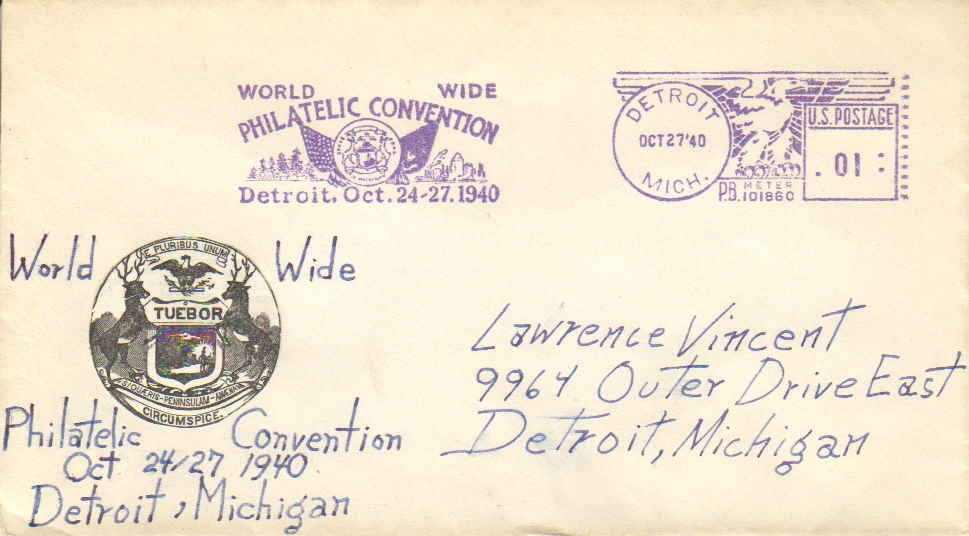 WORLD WIDE
PHILATELIC CONVENTION
Detroit, Oct. 24-27. 1940
DETROIT
OCT 27 '40
MICH.
U.S. POSTAGE
.01 :
P.B. METER
101860
World Wide
E PLURIBUS UNUM
TUEBOR
SI QUÆRIS-PENINSULAM-AMŒNAM
CIRCUMSPICE.
Philatelic Convention
Oct 24/27 1940
Detroit, Michigan
Lawrence Vincent
9964 Outer Drive East
Detroit, Michigan